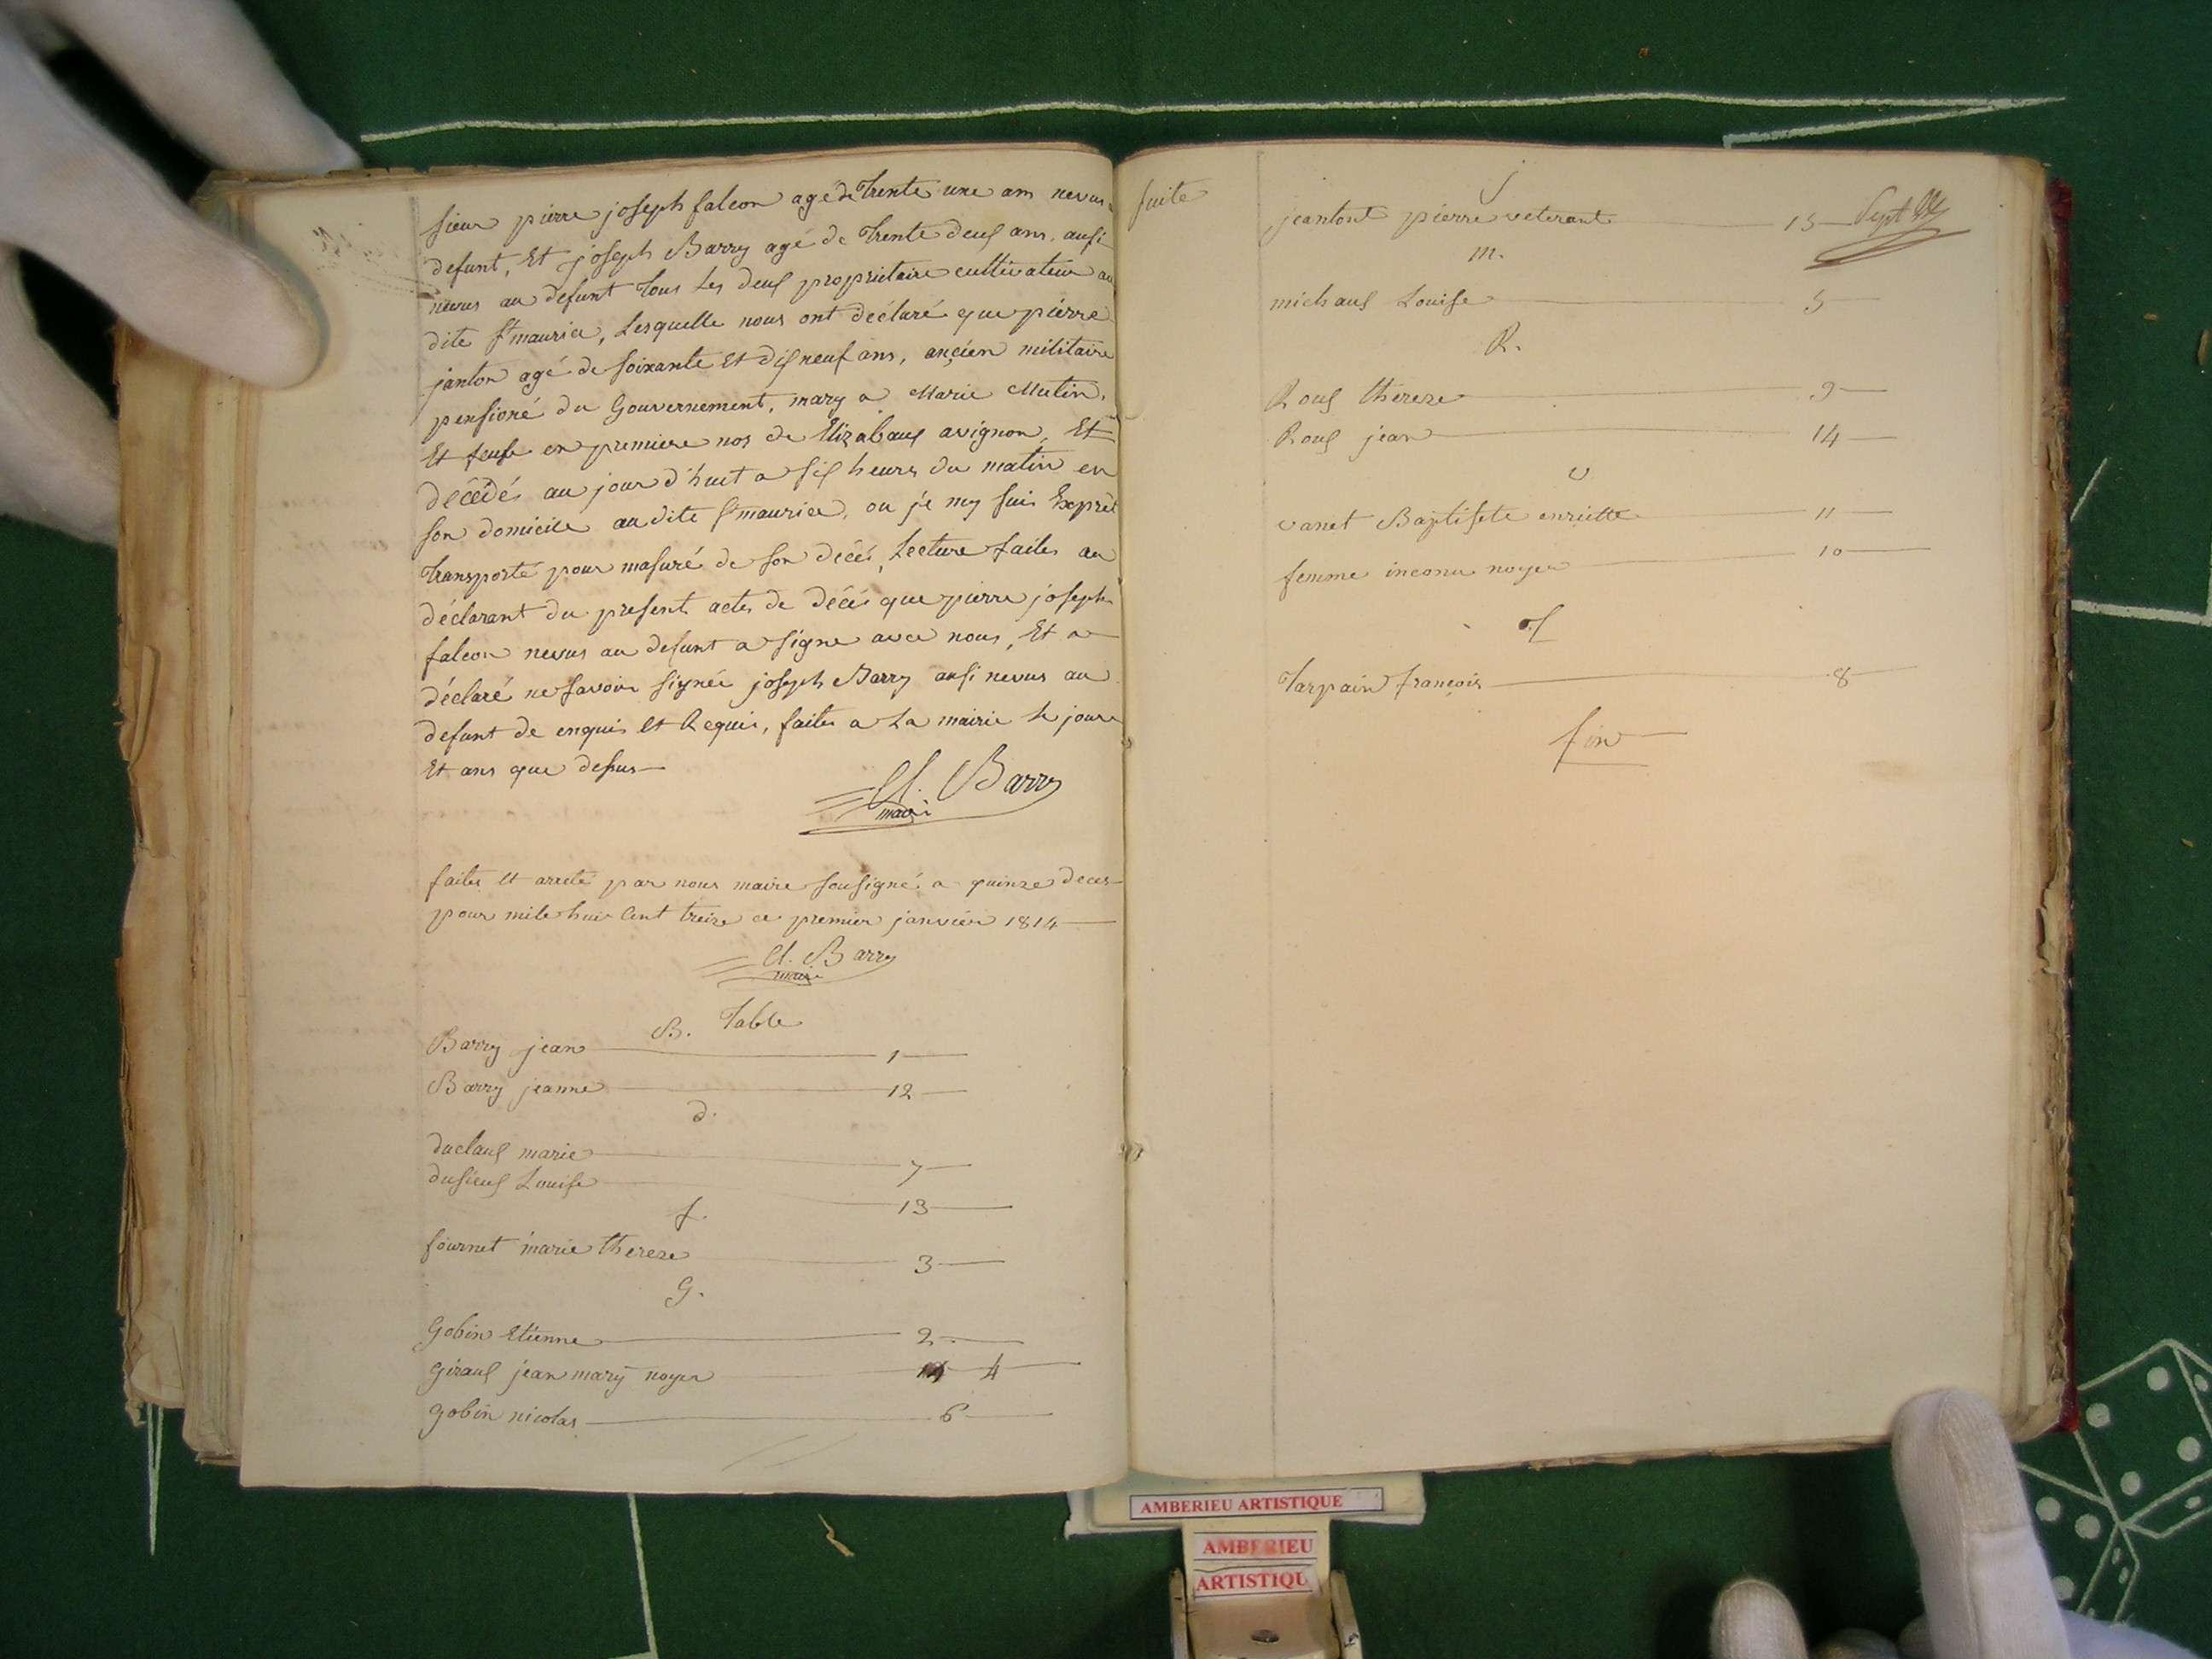 sieur pierre joseph falcon agé de Trente une ans nevus
defunt, Et joseph Barry agé de Trente deux ans ausi
nevus au defunt Tous Les deux proprietaire cultivateur au
dite St maurice, Lesquelle nous ont déclaré que pierre
janton agé de soixante Et dix neuf ans, ançien militaire
pensioné du Gouvernement, mary a Marie Mutin,
Et feufe en premiere nos de Elizabaux avignon, Et
décédés au jour d'huit a six heurs du matin en
son domicile au dite St maurice, ou je my suis Exprèt
Transporté pour masuré de son décés, Lecture faites au
déclarant du present actes de décés que pierre joseph
falcon nevus au defunt a signe avec nous, Et a
déclaré ne savoir signée joseph Barry ausi nevus au
defunt de enquis Et Requis, faites a La mairie Le jour
Et ans que desus
Cl. Barry
maire
faites Et areté par nous maire sousigné a quinze deces
pour mile huis Cent treize ce premier janvier 1814
Cl. Barry
maire
Table
B.
Barry jean 1
Barry jeanne 12
d.
duclaux marie 7
dusieux Louise 13
f.
fournet marie therese 3
G.
Gobin Etienne 2
Giraux jean mary noyer 4
Gobin nicolas 6
suite
J
jeantont pierre veterant 15 Sept
m.
michaux Louise 5
R.
Roux therese 9
Roux jean 14
v
vanet Baptiste enriette 11
femme inconu noyer 10
T
Tarpain françois 8
fin
AMBERIEU ARTISTIQUE
AMBERIEU
ARTISTIQU